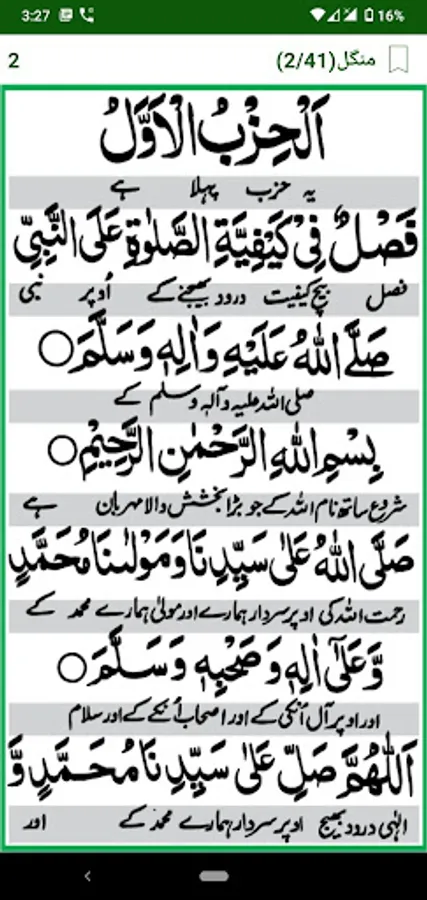 3:27 16%
2 منگل(2/41)
اَلْحِزْبُ الْاَوَّلُ
یہ حزب پہلا ہے
فَصْلٌ فِیْ كَیْفِیَّةِ الصَّلٰوةِ عَلَى النَّبِیِّ
فصل بیچ کیفیت درود بھیجنے کے اُوپر نبی
صَلَّے اللّٰهُ عَلَیْهِ وَاٰلِهٖ وَسَلَّمَ ○
صلی اللہ علیہ وآلہٖ وسلم کے
بِسْمِ اللّٰهِ الرَّحْمٰنِ الرَّحِیْمِ ○
شروع ساتھ نام اللہ کے جو بڑا بخشش والا مہربان ہے
صَلَّى اللّٰهُ عَلٰى سَیِّدِنَا وَمَوْلٰىنَا مُحَمَّدٍ
رحمت اللہ کی اوپر سردار ہمارے اور مولیٰ ہمارے محمد کے
وَّعَلٰۤى اٰلِهٖ وَصَحْبِهٖ وَسَلَّمَ ○
اور اوپر آل اُنکی کے اور اصحاب اُنکے کے اور سلام
اَللّٰهُمَّ صَلِّ عَلٰى سَیِّدِنَا مُحَمَّدٍ وَّ
الٰہی درود بھیج اوپر سردار ہمارے محمد کے اور